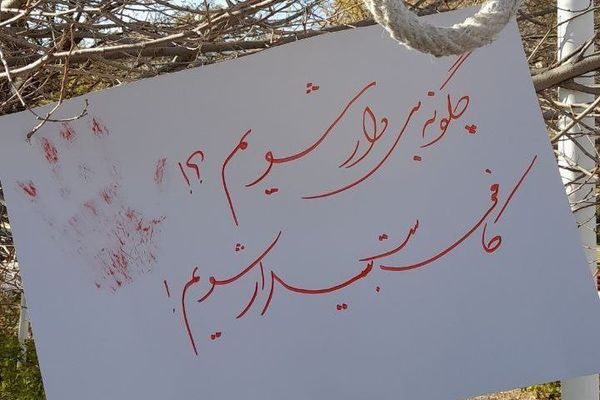 چگونه بی دار شویم ؟!
کافی ست بیدار شویم !